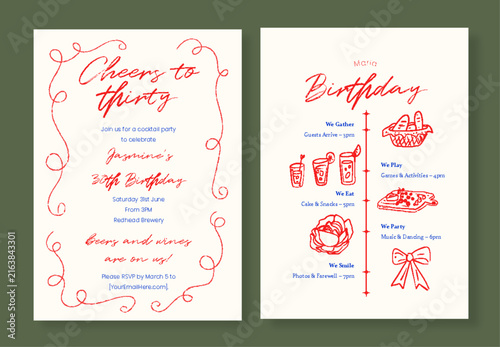 Cheers to
thirty
Join us for a cocktail party
to celebrate
Jasmine's
30th Birthday
Saturday 31st June
From 3PM
Redhead Brewery
Beers and wines
are on us!
Please RSVP by March 5 to
[YourEmailHere.com]
MENU
Birthday
We Gather
Guests Arrive – 3pm
We Play
Games & Activities – 4pm
We Eat
Cake & Snacks – 5pm
We Party
Music & Dancing – 6pm
We Smile
Photos & Farewell – 7pm
2163843301